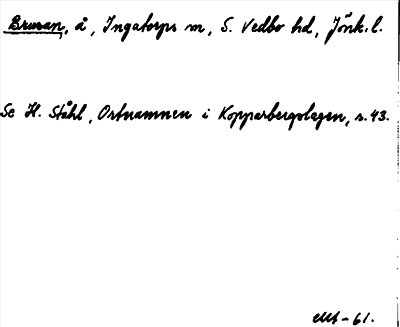 Brusan, å, Ingatorps sn, S. Vedbo hd, Jönk. l.
Se H. Ståhl, Ortnamnen i Kopparbergslagen, s. 43.
-61.